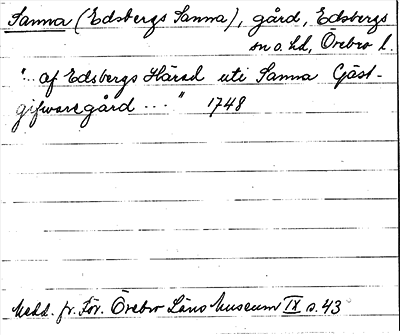 Sanna (Edsbergs Sanna), gård, Edsbergs
sn o. hd, Örebro l.
"... af Edsbergs Härad uti Sanna Gäst-
gifwaregård ..." 1748
Medd. fr. För. Örebro Läns Museum IX s. 43